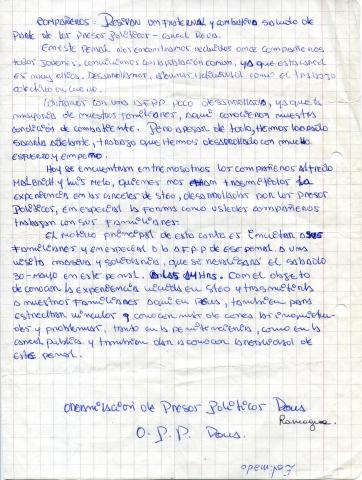 COMPAÑEROS: RECIBAN UN FRATERNAL y combativo saludo de
parte de los Presos Políticos - Cárcel Rcua.
En este penal nos encontramos recluidos once compañeros
todos jovenes, convivimos con la población común, ya que esta cárcel
es muy chica. Desarrollamos, labores individual como el trabajo
colectivo
Contamos con una AFPP poco desarrollada, ya que la
mayoría de nuestros familiares, aquí conocieron nuestra
condición de combatiente. Pero apesar de todo, hemos logrado
sacarla adelante, trabajo que hemos desarrollado con mucho
esfuerzo y empeño.
Hoy se encuentran entre nosotros los compañeros Alfredo
Malbrich y Luis Melo, quienes nos han trasmitido la
experiencia en las carceles de Stgo, desarrolladas por los Presos
Políticos, en especial la forma como ustedes compañeros
trabajan con sus familiares.
El motivo principal de esta carta es invitar a sus
familiares y en especial a la AFPP de ese penal a una
visita masiva y solidaria, que se realizará el sabado
30-mayo en este penal. A las 14 Hrs. Con el objeto
de conocer la experiencia vivida en Stgo y trasmitirla
a nuestros familiares aquí en Rcua, tambien para
estrechar vinculos y conocer más de cerca las inquietu-
des y problemas, tanto en la penitenciaria, como en la
carcel publica y tambien dar a conocer la realidad de
este penal.
Organización de Presos Políticos Rcua
Rancagua.
O. P. P. Rcua.